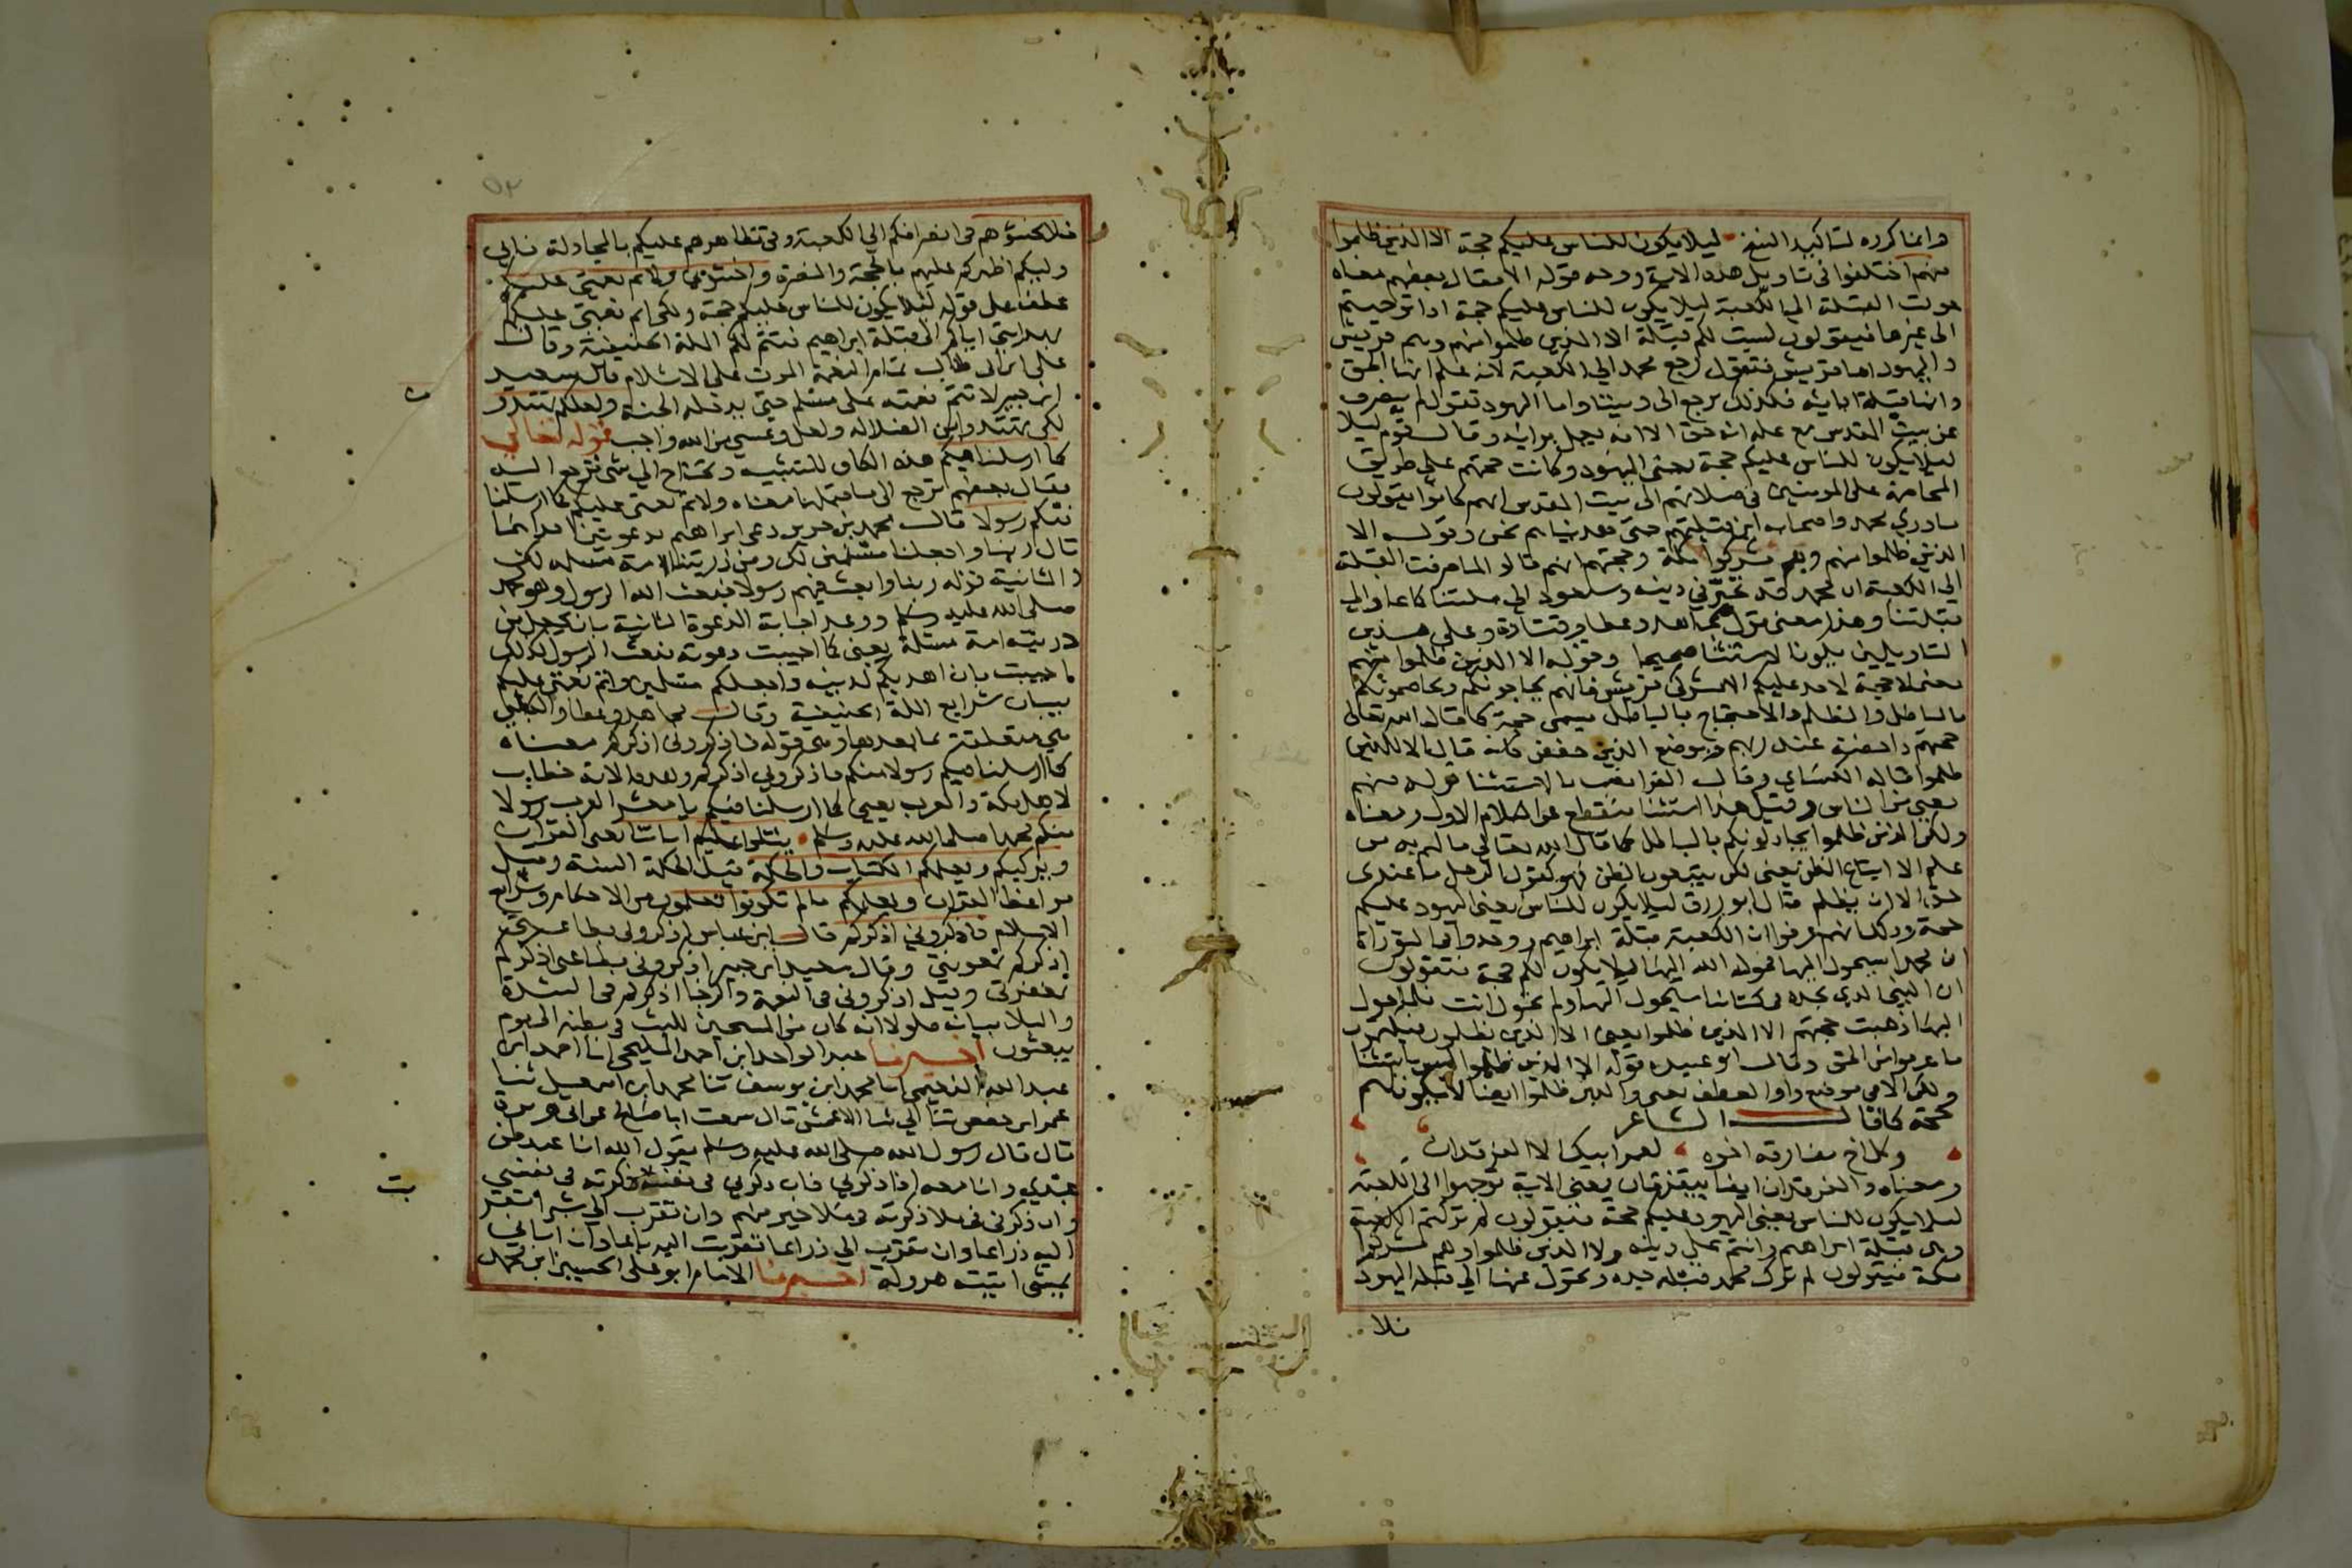 وانما كرره لتاكيد النسخ ليلا يكون للناس عليكم حجة الا الذين ظلموا
منهم اختلفوا في تاويل هذه الاية ووجه قوله الا فقال بعضهم معناه
حولت القبلة الى الكعبة ليلا يكون للناس عليكم حجة اذا توجهتم
الى غيرها فيقولون ليست لكم قبلة الا الذين ظلموا منهم وهم قريش
واليهود اما قريش فتقول رجع محمد الي الكعبة لانه علم انها الحق
وانها قبلة ابايه فكذلك يرجع الى ديننا واما اليهود تقول لم ينصرف
عن بيت المقدس مع علمه انه حق الا انه يعمل برايه وقال قوم ليلا
ليلا يكون للناس عليكم حجة يعني اليهود وكانت حجتهم على طريق
المخاصمة على المومنين في صلاتهم الى بيت المقدس انهم كانوا يقولون
مادري محمد واصحابه اين قبلتهم حتى هديناهم نحن وقوله الا
الذين ظلموا منهم وهم مشركوا مكة وحجتهم انهم قالوا لما صرفت القبلة
الي الكعبة ان محمد قد تحير في دينه وسيعود الي ملتنا كما عاد الي
قبلتنا وهذا معنى قول مجاهد وعطا وقتادة وعلى هذين
التاويلين يكون الاستثنا صحيحا وقوله الا الذين ظلموا منهم
يعني لا حجة لاحد عليكم الا مشركي قريش فانهم يحاجونكم ويخاصمونكم
بالباطل والظلم والاحتجاج بالباطل يسمى حجة كما قال الله تعالى
حجتهم داحضة عند ربهم وموضع الذين خفض كانه قال الا للذين
ظلموا قاله الكساي وقال الفرا نصب بالاستثنا قوله منهم
يعني من الناس وقيل هذا استثنا منقطع عن الكلام الاول ومعناه
ولكن الذين ظلموا يجادلونكم بالباطل كما قال الله تعالى ما لهم به من
علم الا اتباع الظن يعني لكن يتبعون الظن فهو كقول الرجل ما عندي
حق الا ان يظلم قال ابو روق ليلا يكون للناس يعني اليهود عليكم
حجة وذلك انهم عرفوا ان الكعبة قبلة ابراهيم ووجدوا في التوراة
ان محمدا سيحول اليها فحوله الله اليها ليلا يكون لكم حجة فتقولون
ان النبي الذي نجده في كتابنا سيحول اليها ولم تحول انت فلما حول
اليها ذهبت حجتهم الا الذين ظلموا يعني الا الذين يظلمون فيكتمون
ما عرفوا من الحق وقال ابو عبيده قوله الا الذين ظلموا ليس باستثنا
ولكن الا في موضع واو العطف يعني والذين ظلموا ايضا لا يكون لهم
حجة كما قال الشاعر
وكل اخ مفارقه اخوه لعمر ابيك الا الفرقدان
ومعناه والفرقدان ايضا يتفرقان يعني الاية توجهوا الى الكعبة
ليلا يكون للناس يعني اليهود عليكم حجة فيقولون لم تركتم الكعبة
وهي قبلة ابراهيم وانتم على دينه ولا الذين ظلموا وهم مشركوا
مكة فيقولون لم ترك محمد قبلة جده وتحول عنها الي قبلة اليهود
فلا
فلا تخشوهم في انصرافكم الي الكعبة وفي تظاهرهم عليكم بالمجادلة فاني
وليكم اظهركم عليهم بالحجة والنصرة واخشوني ولاتم نعمتي عليكم
عطف على قوله ليلا يكون للناس عليكم حجة ولكي اتم نعمتي عليكم
بهدايتي اياكم الى قبلة ابراهيم فتتم لكم الملة الحنيفية وقال
علي ابن ابي طالب تمام النعمة الموت على الاسلام قال سعيد
ابن جبير لا تتم نعمته على مسلم حتى يدخله الجنة ولعلكم تهتدون
لكي تهتدوا من الضلالة ولعل وعسى من الله واجب قوله تعالى
كما ارسلنا فيكم هذه الكاف للتشبيه وتحتاج الي شي ترجع اليه
فقال بعضهم ترجع الى ما قبلها معناه ولاتم نعمتي عليكم كما ارسلنا
فيكم رسولا قال محمد بن جرير دعى ابراهيم بدعوتين احداهما
قال ربنا واجعلنا مسلمين لك ومن ذريتنا امة مسلمة لك
والثانية قوله ربنا وابعث فيهم رسولا فبعث الله الرسول وهو محمد
صلى الله عليه وسلم ووعد اجابة الدعوة الثانية بان يجعل من
ذريته امة مسلمة يعني كما اجيبت دعوته ببعث الرسول كذلك
اجيبت بان اهديكم لدينه واجعلكم مسلمين واتم نعمتي عليكم
ببيان شرايع الملة الحنيفية وقال مجاهد وعطا والكلبي
هي متعلقة بما بعدها وهي قوله فاذكروني اذكركم معناه
كما ارسلنا فيكم رسولا منكم فاذكروني اذكركم وهذه الاية خطاب
لاهل مكة والعرب يعني كما ارسلنا فيكم يا معشر العرب رسولا
منكم محمدا صلى الله عليه وسلم يتلوا عليكم اياتنا يعني القران
ويزكيكم ويعلمكم الكتاب والحكمة قيل الحكمة السنة وقيل
مواعظ القران ويعلمكم ما لم تكونوا تعلمون من الاحكام وشرايع
الاسلام فاذكروني اذكركم قال ابن عباس اذكروني بطاعتي
اذكركم بمعونتي وقال سعيد ابن جبير اذكروني بطاعتي اذكركم
بمغفرتي وقيل اذكروني في النعمة والرخا اذكركم في الشدة
والبلا بيانه فلولا انه كان من المسبحين للبث في بطنه الى يوم
يبعثون اخبرنا عبد الواحد ابن احمد المليحي انا احمد ابن
عبد الله النعيمي انا محمد ابن يوسف ثنا محمد ابن اسمعيل ثنا
عمر ابن حفص ثنا ابي ثنا الاعمش قال سمعت ابا صالح عن ابي هريرة
قال قال رسول الله صلى الله عليه وسلم يقول الله انا عند ظن
عبدي وانا معه اذا ذكرني فان ذكرني في نفسه ذكرته في نفسي
وان ذكرني في ملا ذكرته في ملا خير منهم وان تقرب الي شبرا تقربت
اليه ذراعا وان تقرب الي ذراعا تقربت اليه باعا وان اتاني
يمشي اتيته هرولة اخبرنا الامام ابو علي الحسين ابن محمد